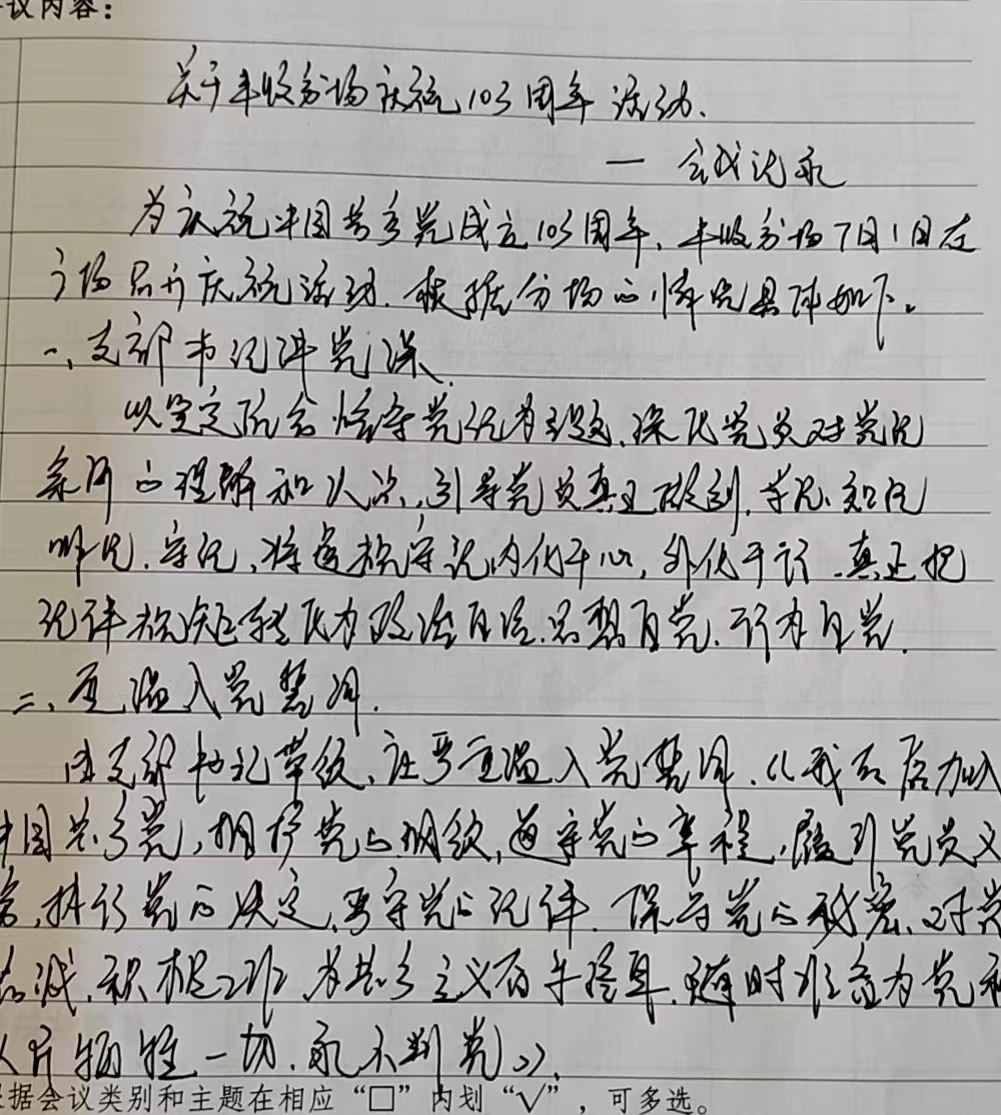 议内容:
关于丰收分场庆祝103周年活动.
— 会议记录
为庆祝中国共产党成立103周年、丰收分场7月1日在
分场召开庆祝活动.根据分场的情况具体如下。
一、支部书记讲党课.
以坚定信念 恪守党纪为主题,深化党员对党纪
条例的理解和认识,引导党员真正做到,学纪.知纪
明纪.守纪,将遵规守纪内化于心,外化于行.真正把
纪律规矩转化为政治自治.思想自觉.行为自觉.
二、重温入党誓词.
由支部书记带领,庄严重温入党誓词.《我志愿加入
中国共产党,拥护党的纲领,遵守党的章程,履行党员义
务,执行党的决定,严守党的纪律.保守党的秘密、对党
忠诚,积极工作,为共产主义奋斗终身,随时准备为党和
人民牺牲一切.永不判党》,
根据会议类别和主题在相应“□”内划“√”,可多选。